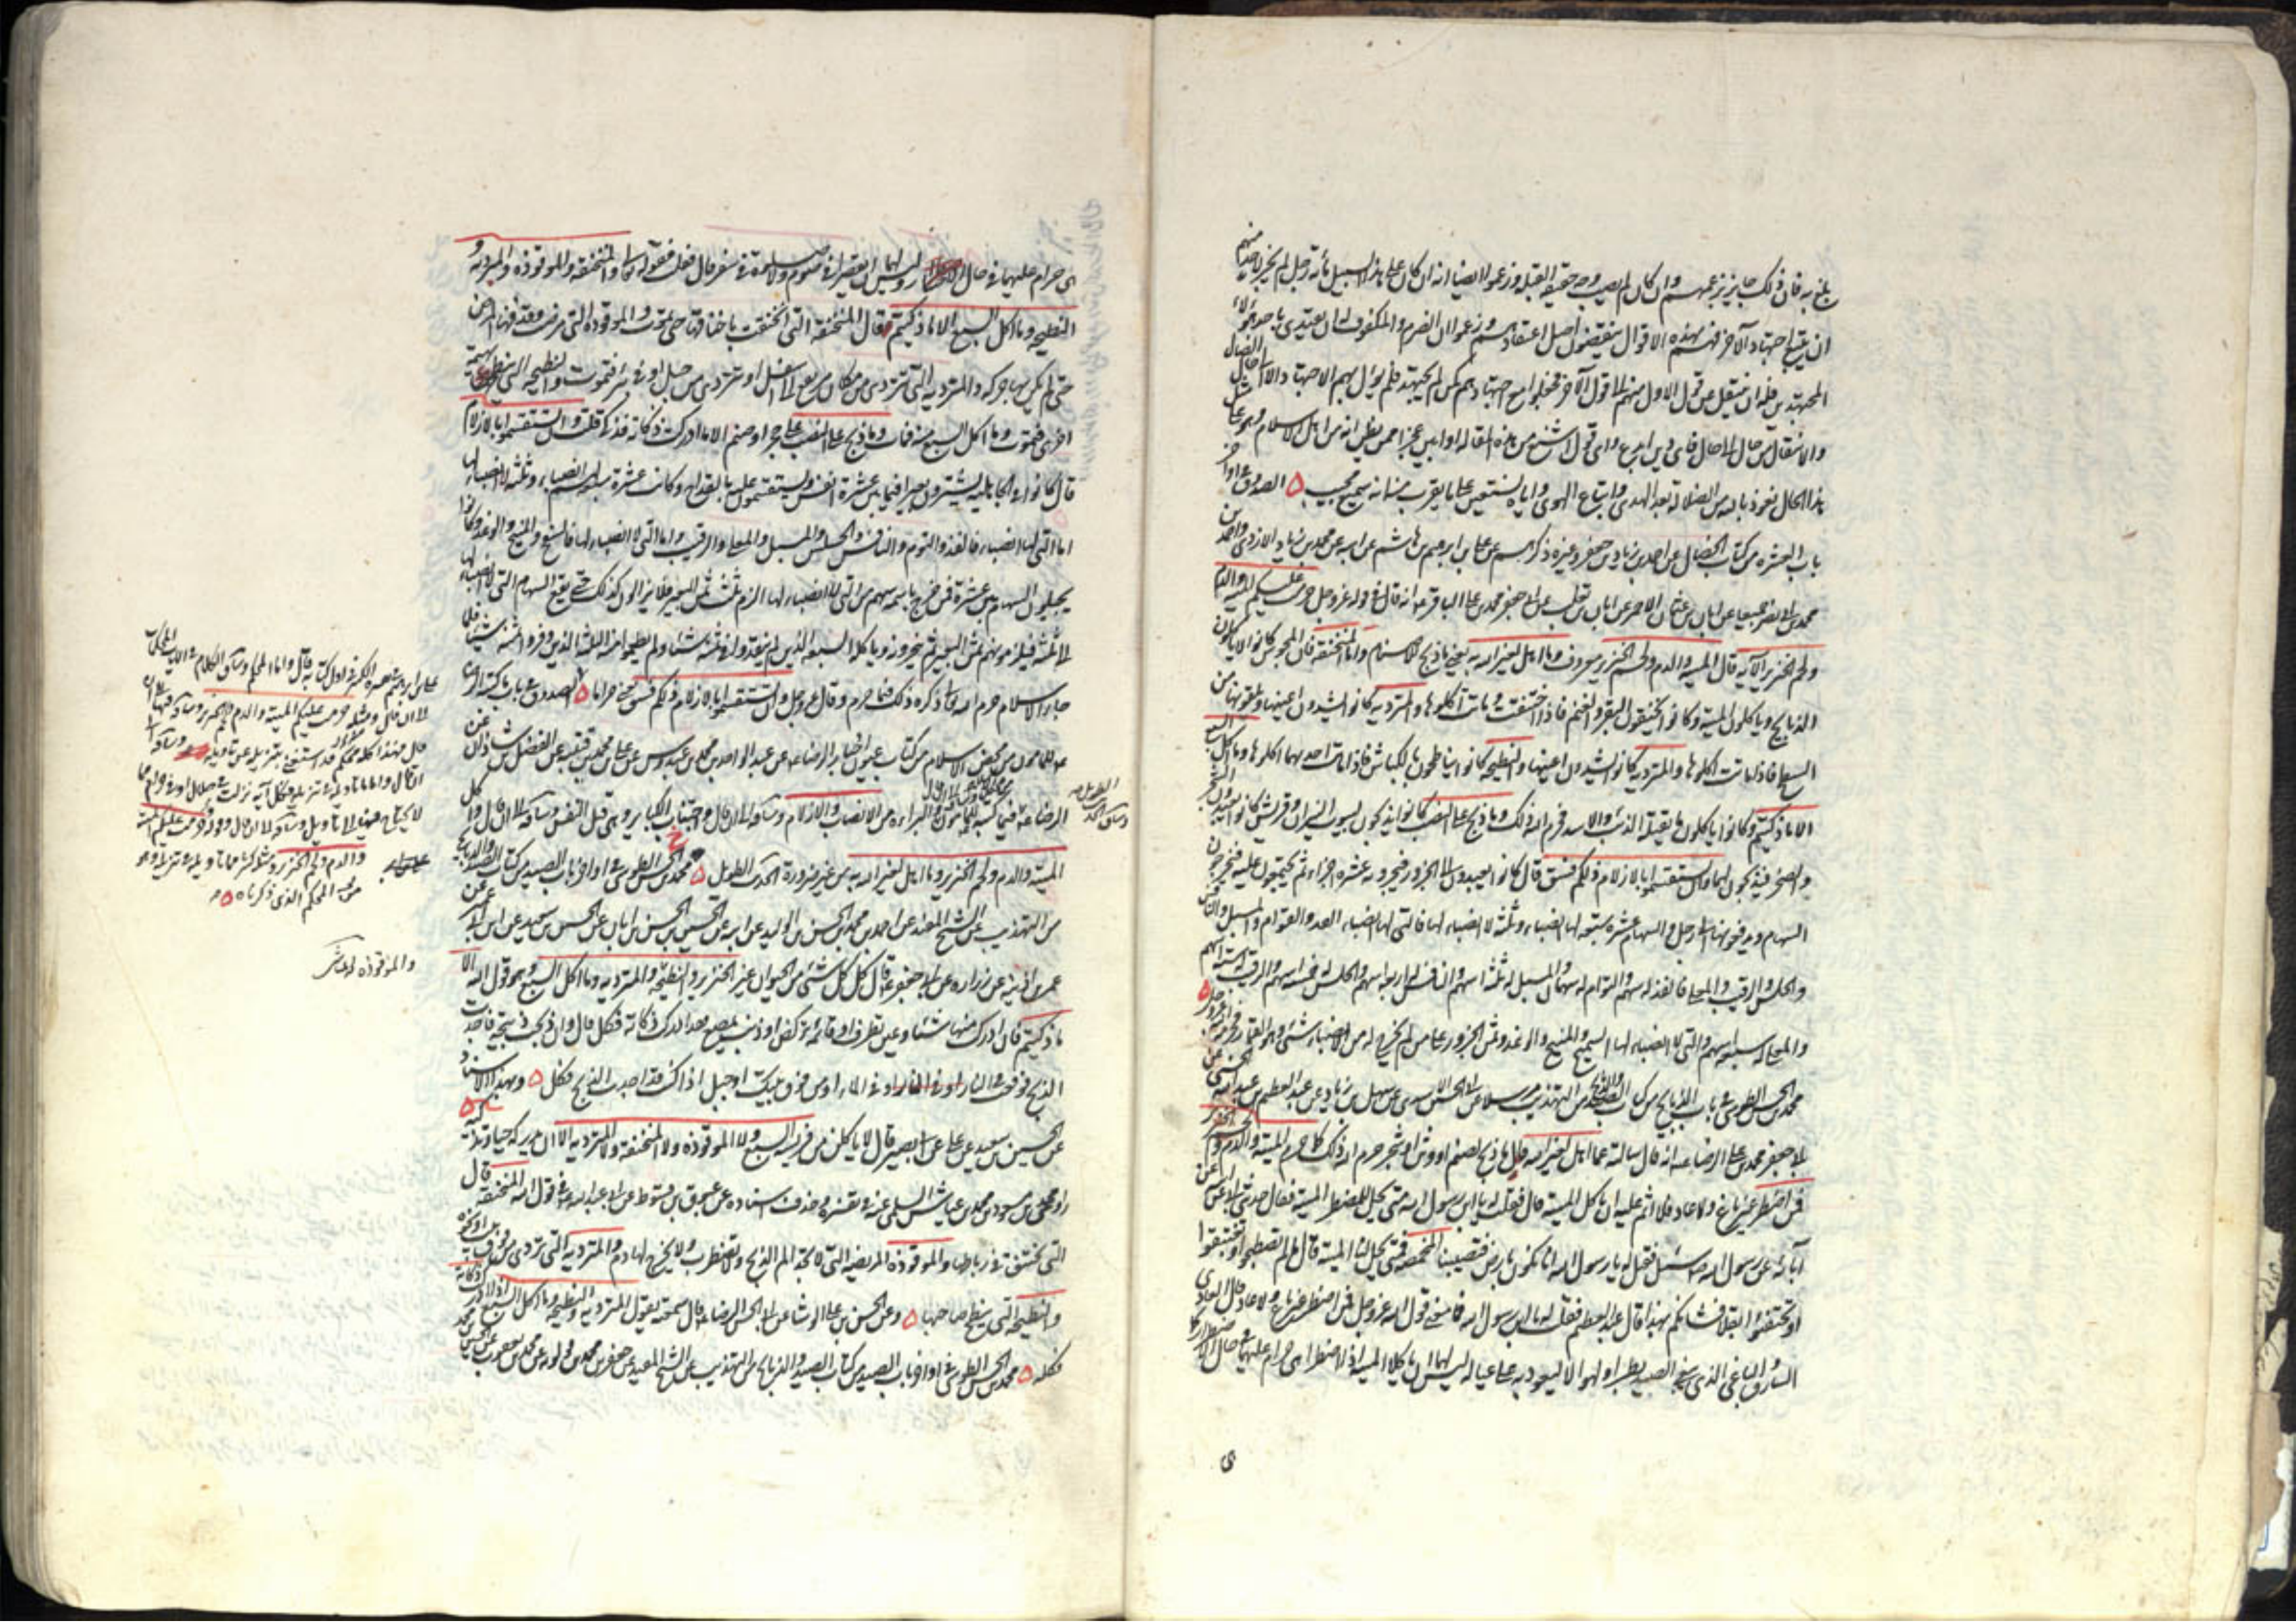 بلغ به فان ذلك جايز بزعمهم وان كان لم يصب وجه حقيقة القبلة وزعموا ايضا انه ان كان على هذا السبيل مائة رجل لم يجز لاحد منهم
ان يتبع اجتهاد الآخر فهم بهذه الاقوال ينقضون اصل اعتقادهم وزعموا ان الضرير والمكفوف له ان يقتدي باحد هؤلاء
المجتهدين فله ان ينتقل عن قول الاول منهم الى قول الآخر فجعلوا مع اجتهادهم كمن لم يجتهد فلم يؤل بهم الاجتهاد الا الى حال الضلال
والانتقال من حال الى حال فاي دين ابدع واي قول اشنع من هذه المقالة او ابين عجزا ممن يظن انه من اهل الاسلام وهو على مثل
هذا الحال نعوذ بالله من الضلالة بعد الهدى واتباع الهوى واياه نستعين على ما يقرب منه انه سميع مجيب ه الصدوق في اواخر
باب العشرة من كتاب الخصال عن احمد بن زياد بن جعفر وغيره ذكرهم عن علي بن ابرهيم بن هاشم عن ابيه عن محمد بن زياد الازدي واحمد بن
محمد بن ابي نصر جميعا عن ابان بن عثمان الاحمر عن ابان بن تغلب عن ابي جعفر محمد بن علي الباقر ع انه قال في قوله عز وجل حرمت عليكم الميتة والدم
ولحم الخنزير الآية قال الميتة والدم ولحم الخنزير معروف وما اهل لغير الله به يعني ما ذبح للاصنام واما المنخنقة فان المجوس كانوا لا ياكلون
الذبايح وياكلون الميتة وكانوا يخنقون البقر والغنم فاذا اختنقت وماتت اكلوها والمتردية كانوا يشدون اعينها ويلقونها من
السطح فاذا ماتت اكلوها والنطيحة كانوا يناطحون بالكباش فاذا مات احديهما اكلوها وما اكل السبع
الا ما ذكيتم وكانوا ياكلون ما يقتله الذئب والاسد فحرم الله ذلك وما ذبح على النصب كانوا يذبحون لبيوت النيران وقريش كانوا يعبدون الشجر
والصخر فيذبحون لهما وان تستقسموا بالازلام ذلكم فسق قال كانوا يعمدون الى الجزور فيجزونه عشرة اجزاء ثم يجتمعون عليه فيخرجون
السهام ويدفعونها الى رجل والسهام عشرة سبعة لها انصباء وثلثة لا انصباء لها فالتي لها انصباء الفذ والتوام والمسبل والنافس
والحلس والرقيب والمعلى فالفذ له سهم والتوام له سهمان والمسبل له ثلثة اسهم والنافس له اربعة اسهم والحلس له خمسة اسهم والرقيب له ستة اسهم
والمعلى له سبعة اسهم والتي لا انصباء لها السفيح والمنيح والوغد وثمن الجزور على من لم يخرج له من الانصباء شئ وهو القمار فحرمه الله عز وجل ه
محمد بن الحسن الطوسي في باب الذبايح من كتاب الصيد والذبايح من التهذيب مرسلا عن ابي الحسن الاسدي عن سهل بن زياد عن عبد العظيم بن عبد الله الحسني عن
ابي جعفر محمد بن علي الرضا ع انه قال سالته عما اهل لغير الله قال ما ذبح لصنم او وثن او شجر حرم الله ذلك كما حرم الميتة والدم ولحم الخنزير
فمن اضطر غير باغ ولا عاد فلا اثم عليه ان ياكل الميتة قال فقلت له يا ابن رسول الله متى تحل للمضطر الميتة فقال حدثني ابي عن ابيه عن
آبائه عن رسول الله ص سئل فقيل له يا رسول الله انا نكون بارض فتصيبنا المخمصة فمتى يحل لنا الميتة قال ما لم تصطبحوا او تغتبقوا
او تحتفئوا بقلا فشانكم بهذا قال عبد العظيم فقلت له يا ابن رسول الله فما معنى قول الله عز وجل فمن اضطر غير باغ ولا عاد قال العادي
السارق والباغي الذي يبغي الصيد بطرا ولهوا لا ليعود به على عياله ليس لهما ان ياكلا الميتة اذا اضطرا هي حرام عليهما في حال الاضطرار كما
هي حرام عليهما في حال الاختيار وليس لهما ان يقصرا في صوم ولا صلوة في سفر قال فقلت فقوله تعالى والمنخنقة والموقوذة والمتردية و
النطيحة وما اكل السبع الا ما ذكيتم قال المنخنقة التي انخنقت باخناقها حتى تموت والموقوذة التي مرضت ووقذها المرض
حتى لم يكن بها حركة والمتردية التي تتردى من مكان مرتفع الى اسفل او تتردى من جبل او في بئر فتموت والنطيحة التي تنطحها بهيمة
اخرى فتموت وما اكل السبع منه فمات وما ذبح على النصب على حجر او صنم الا ما ادرك ذكاته فذكي قلت وان تستقسموا بالازلام
قال كانوا في الجاهلية يشترون بعيرا فيما بين عشرة انفس ويستقسمون عليه بالقداح وكانت عشرة سبعة لهم انصباء وثلثة لا انصباء لها
اما التي لها انصباء فالفذ والتوم والنافس والحلس والمسبل والمعلى والرقيب واما التي لا انصباء لها فالسفيح والمنيح والوغد وكانوا
يجيلون السهام بين عشرة فمن خرج باسمه سهم من التي لا انصباء لها الزم ثلث ثمن البعير فلا يزالون كذلك حتى يقع السهام التي لا انصباء لها
الى ثلثة فيلزمونهم ثمن البعير ثم ينحرونه وياكله السبعة الذين لم ينقدوا في ثمنه شيئا ولم يطعموا منه الثلثة الذين وفروا ثمنه شيئا فلما
جاء الاسلام حرم الله تعالى ذكره ذلك فيما حرم وقال عز وجل وان تستقسموا بالازلام ذلكم فسق يعني حراما ه الصدوق في باب ما كتبه الرضا ع
للمامون من محض الاسلام من كتاب عيون اخبار الرضا ع عن عبد الواحد بن محمد بن عبدوس عن علي بن محمد بن قتيبة عن الفضل بن شاذان عن
الرضا ع فيما كتبه للمامون والبراءة من الانصاب والازلام وساقه الى ان قال واجتناب الكباير وهي قتل النفس وساقه الى ان قال واكل
الميتة والدم ولحم الخنزير وما اهل لغير الله به من غير ضرورة الحديث الطويل ه محمد بن الحسن الطوسي في اوايل باب الصيد من كتاب الصيد والذبايح
من التهذيب عن الشيخ المفيد عن احمد بن محمد بن الحسن بن الوليد عن ابيه عن الحسين بن الحسن بن ابان عن الحسين بن سعيد عن ابن ابي عمير عن
عمر بن اذينة عن زرارة عن ابي جعفر ع قال كل كل شئ من الحيوان غير الخنزير والنطيحة والمتردية وما اكل السبع وهو قول الله الا
ما ذكيتم فان ادركت منها شيئا وعين تطرف او قائمة تركض او ذنب يمصع فقد ادركت ذكاته فكل قال وان ذبحت ذبيحة فاجدت
الذبح فوقعت في النار او في الماء او من فوق بيتك او جبل اذا كنت قد اجدت الذبح فكل ه وبهذا الاسناد
عن الحسين بن سعيد عن ابي بصير قال لا تاكلن من فريسة السبع ولا الموقوذة ولا المنخنقة ولا المتردية الا ان تدركه حيا وتذكيه ه
محمد بن مسعود بن محمد بن عياش السلمي في تفسيره وحذف اسناده عن عيوق بن قسوط عن ابي عبد الله ع في قول الله المنخنقة قال
التي تختنق في رباطها والموقوذة المريضة التي لا تجد الم الذبح ولا تضطرب ولا يخرج لها دم والمتردية التي تردى من فوق بيت او نحوه
والنطيحة التي ينطح صاحبها ه وعن الحسن بن علي الوشا عن ابي الحسن الرضا ع قال سمعته يقول المتردية والنطيحة وما اكل السبع اذا ادركت ذكاته
فكله ه محمد بن الحسن الطوسي في اوايل باب الصيد من كتاب الصيد والذبايح من التهذيب عن الشيخ المفيد عن جعفر بن محمد بن قولويه عن محمد بن يعقوب
والموقوذة